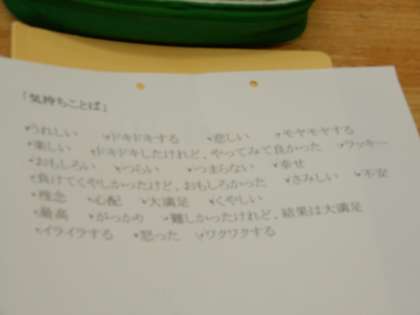 「気持ちことば」
・うれしい ・ドキドキする ・悲しい ・モヤモヤする
・楽しい ・ドキドキしたけれど、やってみて良かった ・ラッキー
・おもしろい ・つらい ・つまらない ・幸せ
・負けてくやしかったけど、おもしろかった ・さみしい ・不安
・残念 ・心配 ・大満足 ・くやしい
・最高 ・がっかり ・難しかったけれど、結果は大満足
・イライラする ・怒った ・ワクワクする